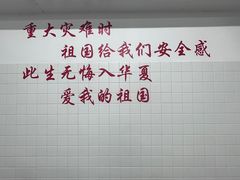 重大灾难时
祖国给我们安全感
此生无悔入华夏
爱我的祖国